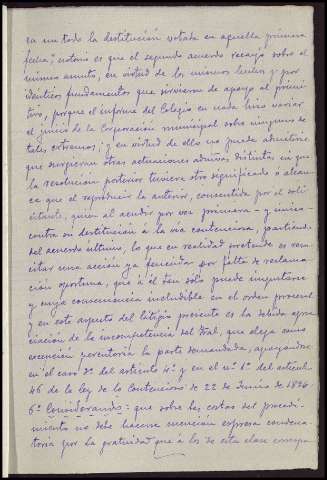 en un todo la destitución votada en aquella primera
fecha; notorio es que el segundo acuerdo recayó sobre el
mismo asunto, en virtud de los mismos hechos y por
idénticos fundamentos que sirvieron de apoyo al primi-
tivo, porque el informe del Colegio en nada hizo variar
el juicio de la Corporación municipal sobre ninguno de
tales extremos; y en virtud de ello no puede admitirse
que surgieran otras actuaciones administ. distintas en que
la resolución posterior tuviera otro significado ó alcan-
ce que el reproducir la anterior, consentida por el soli-
citante, quien al acudir por vez primera – y única –
contra su destitución á la vía contenciosa, partiendo
del acuerdo último, lo que en realidad pretende es resu-
citar una acción ya fenecida por falta de reclama-
ción oportuna, que á él tan sólo puede imputarse
y cuya consecuencia ineludible en el orden procesal
y en este aspecto del litigio presente es la debida apre-
ciación de la incompetencia del Tral, que alega como
excepción perentoria la parte demandada, apoyándose
en el caso 3º del artículo 4º y en el nº 1º del artículo
46 de la ley de lo Contencioso de 22 de Junio de 1894
6º Considerando: que sobre las costas del procedi-
miento no debe hacerse mención expresa condena-
toria por la gratuidad que á los de esta clase corresp